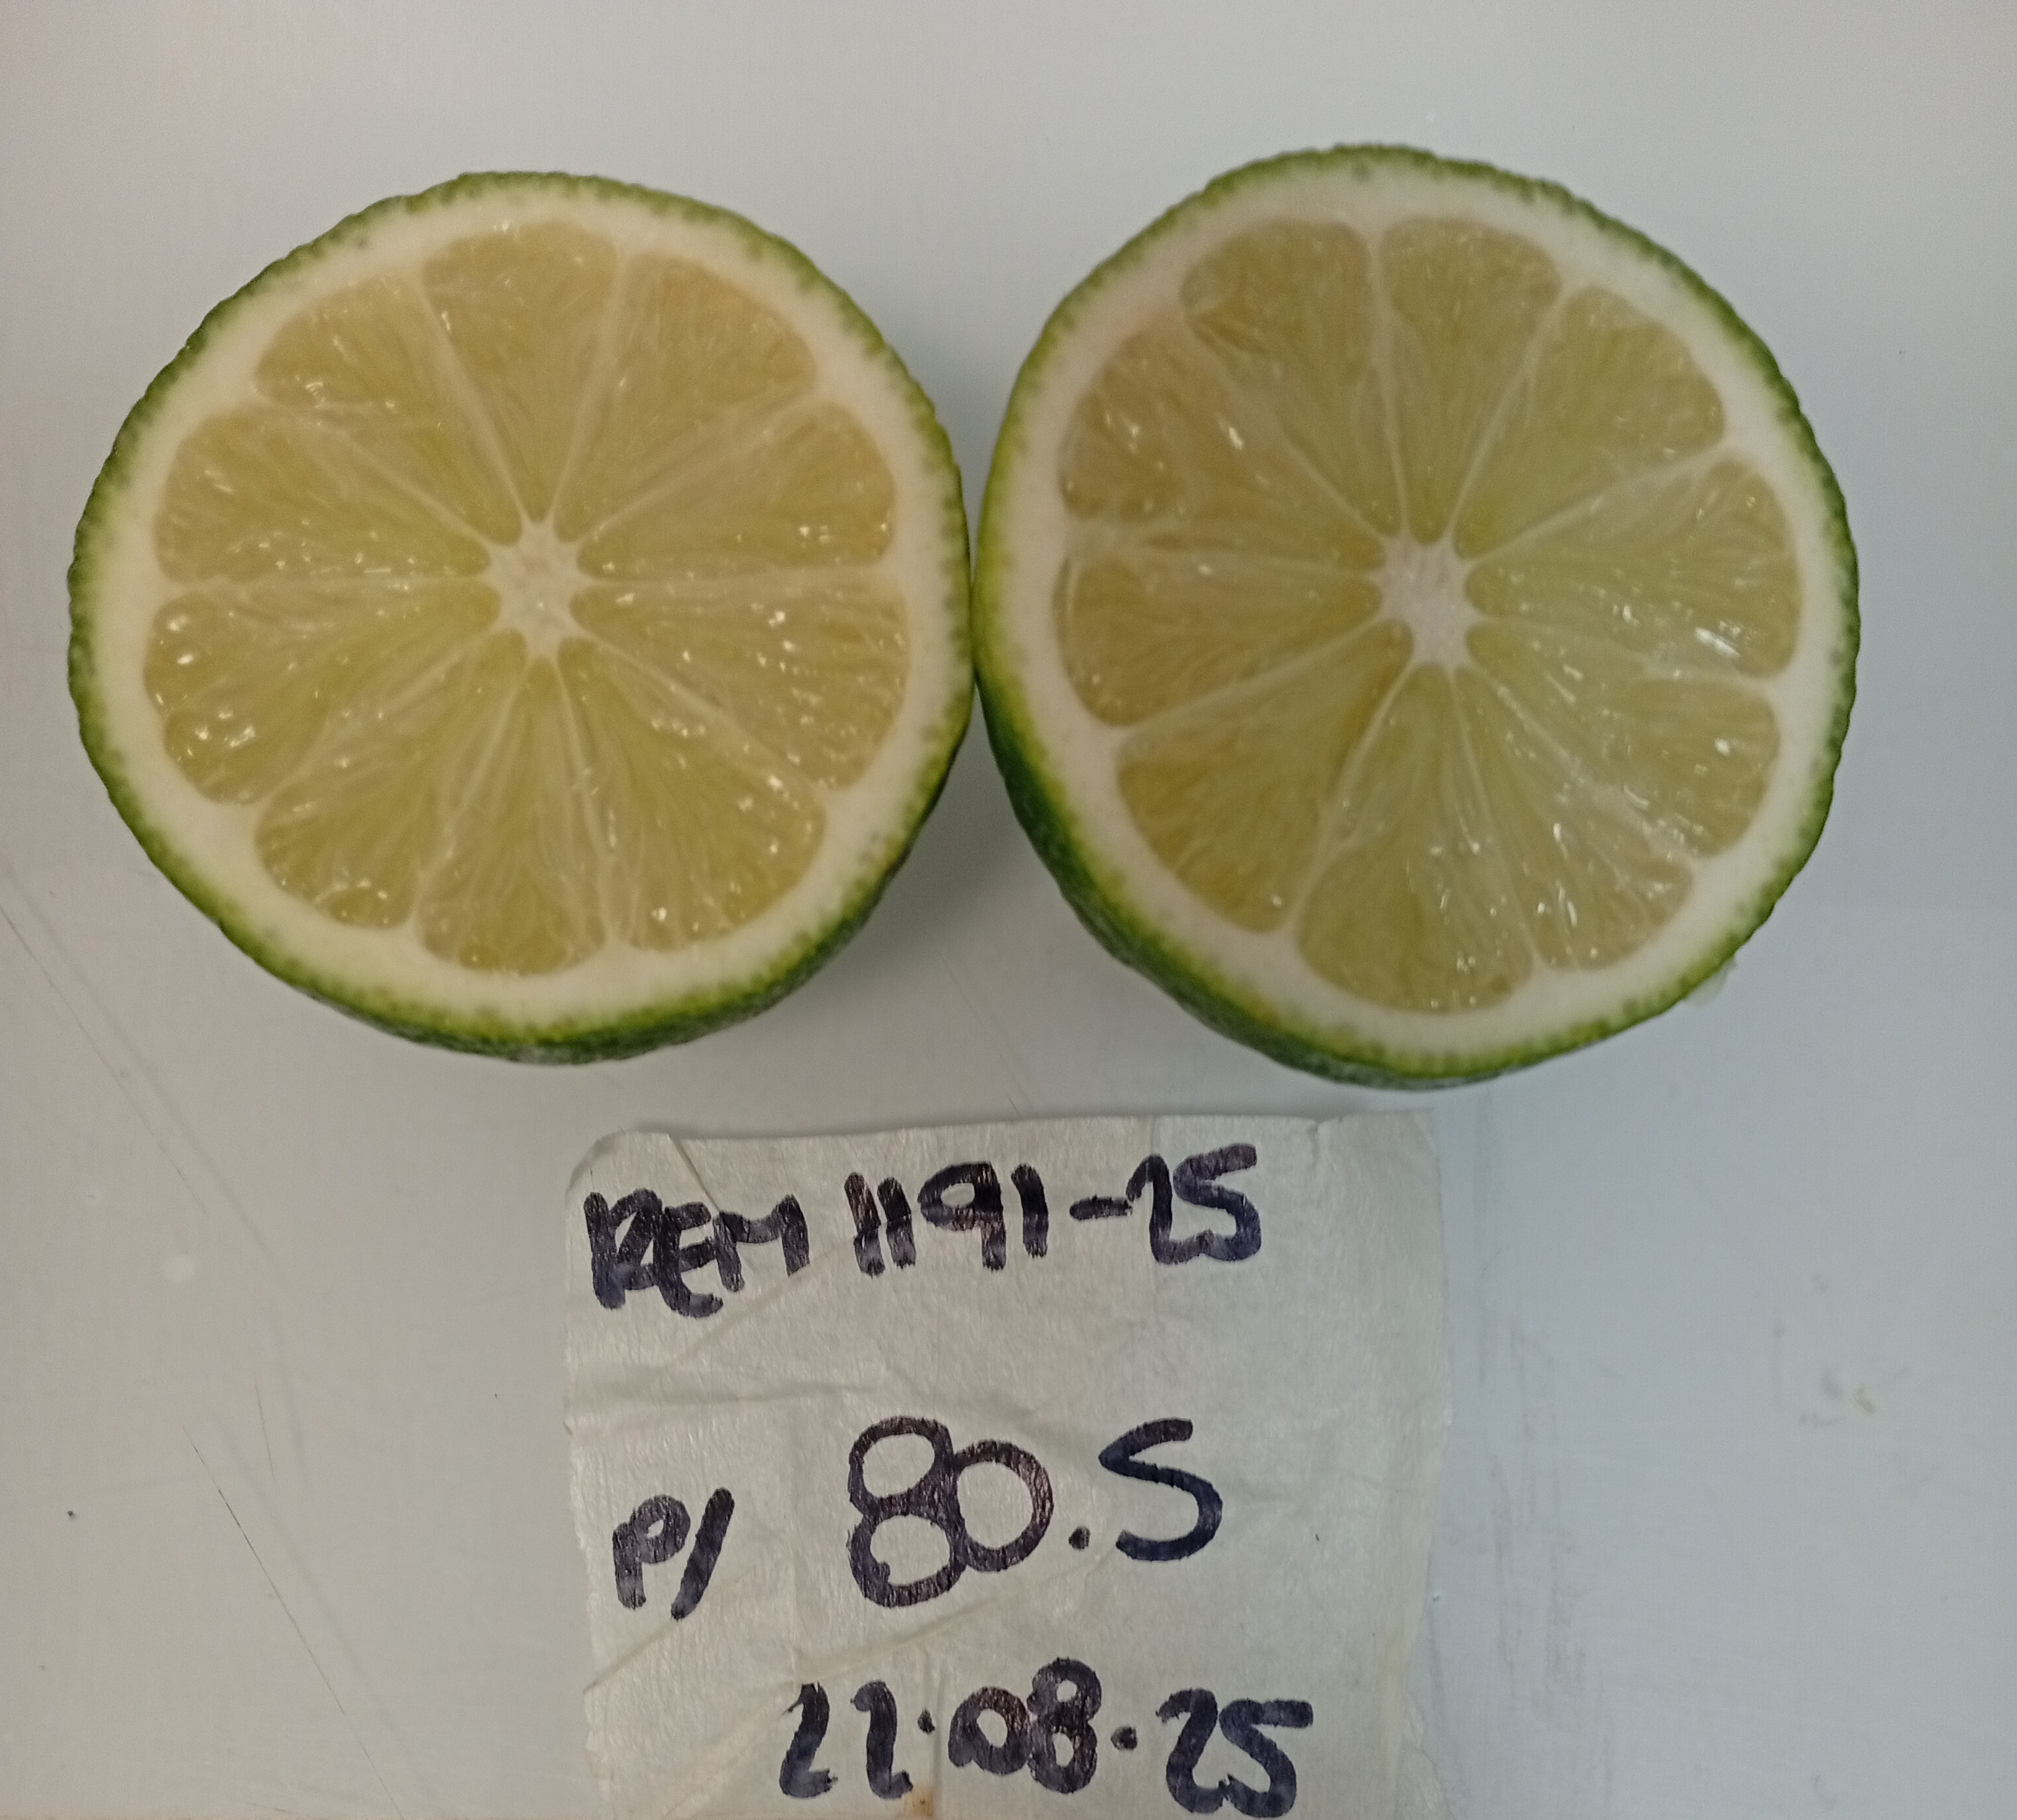 REM 1191-25
P/ 80.5
22.08.25